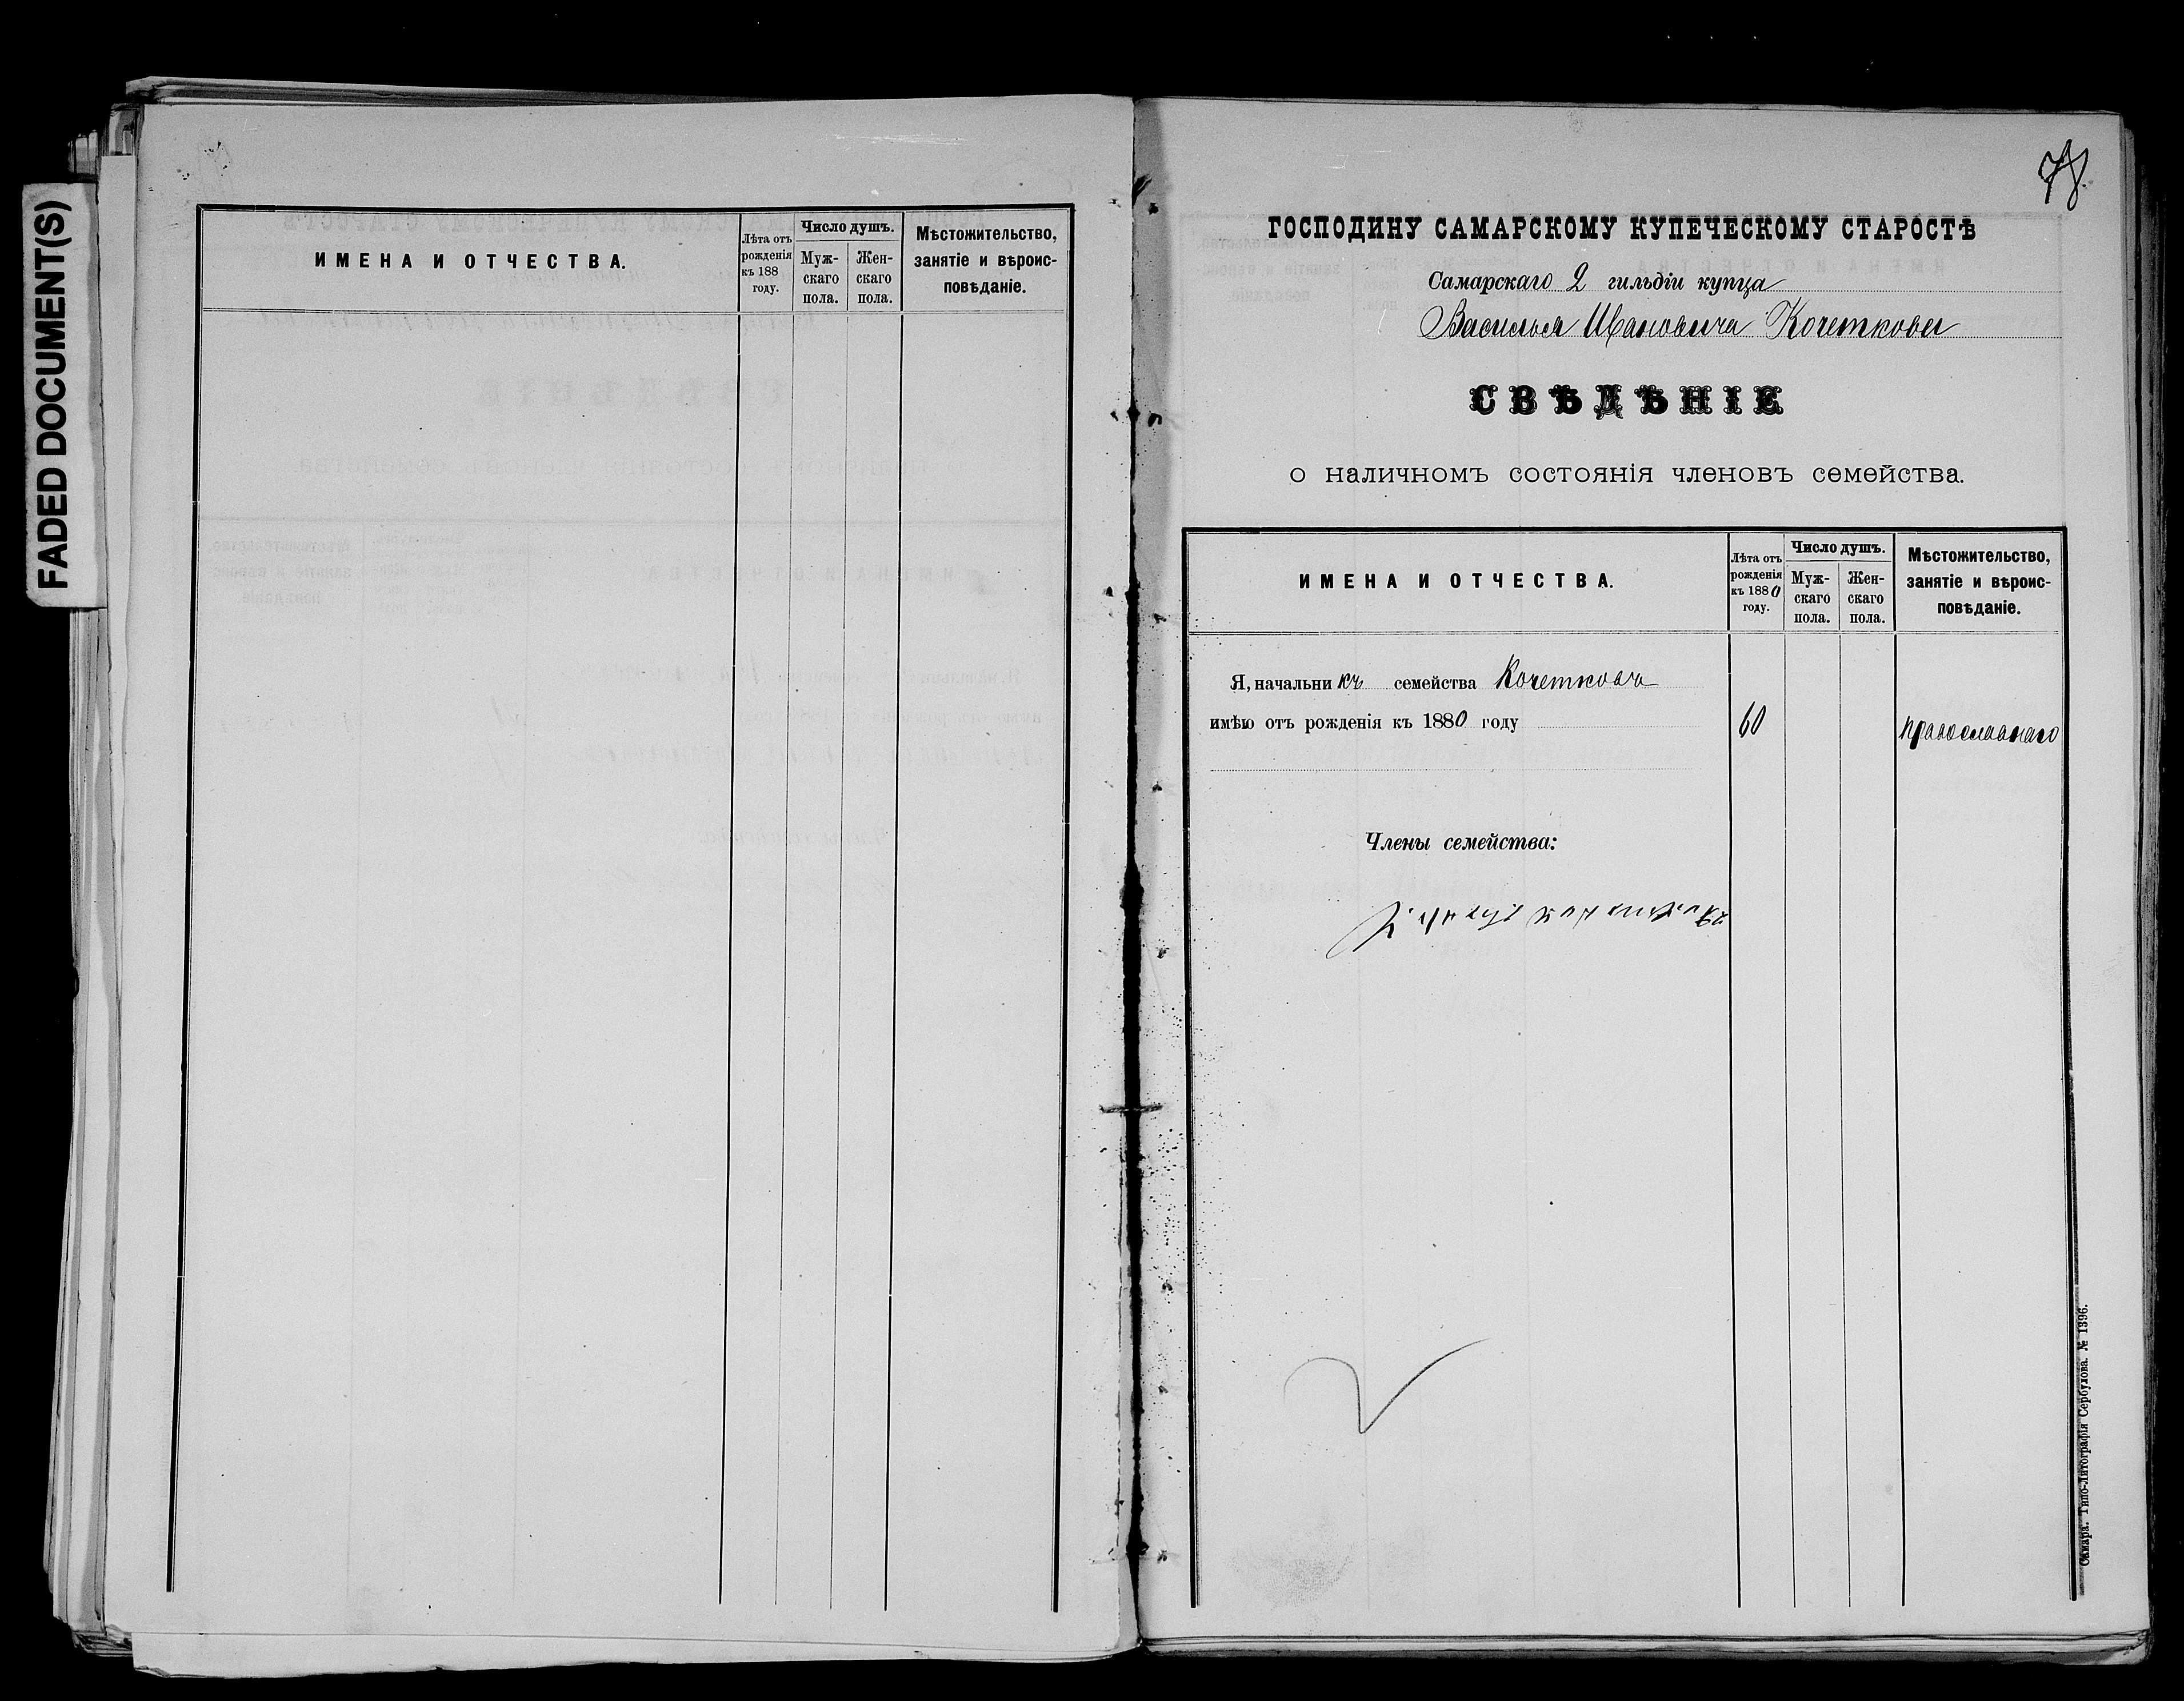 FADED DOCUMENT(S)
ИМЕНА И ОТЧЕСТВА.
Лѣта отъ рожденія къ 188 году.
Число душъ.
Мужскаго пола.
Женскаго пола.
Мѣстожительство, занятіе и вѣроисповѣданіе.
78.
ГОСПОДИНУ САМАРСКОМУ КУПЕЧЕСКОМУ СТАРОСТѢ
Самарскаго 2 гильдіи купца
Василья Ивановича Кочеткова
СВѢДѢНІЕ
о наличномъ состоянія членовъ семейства.
ИМЕНА И ОТЧЕСТВА.
Лѣта отъ рожденія къ 1880 году.
Число душъ.
Муж-скаго пола.
Жен-скаго пола.
Мѣстожительство, занятіе и вѣроис-повѣданіе.
Я, начальникъ семейства Кочетковъ
имѣю отъ рожденія къ 1880 году 60 православнаго
Члены семейства:
Самара. Типо-Литографія Сербулова. № 1396.